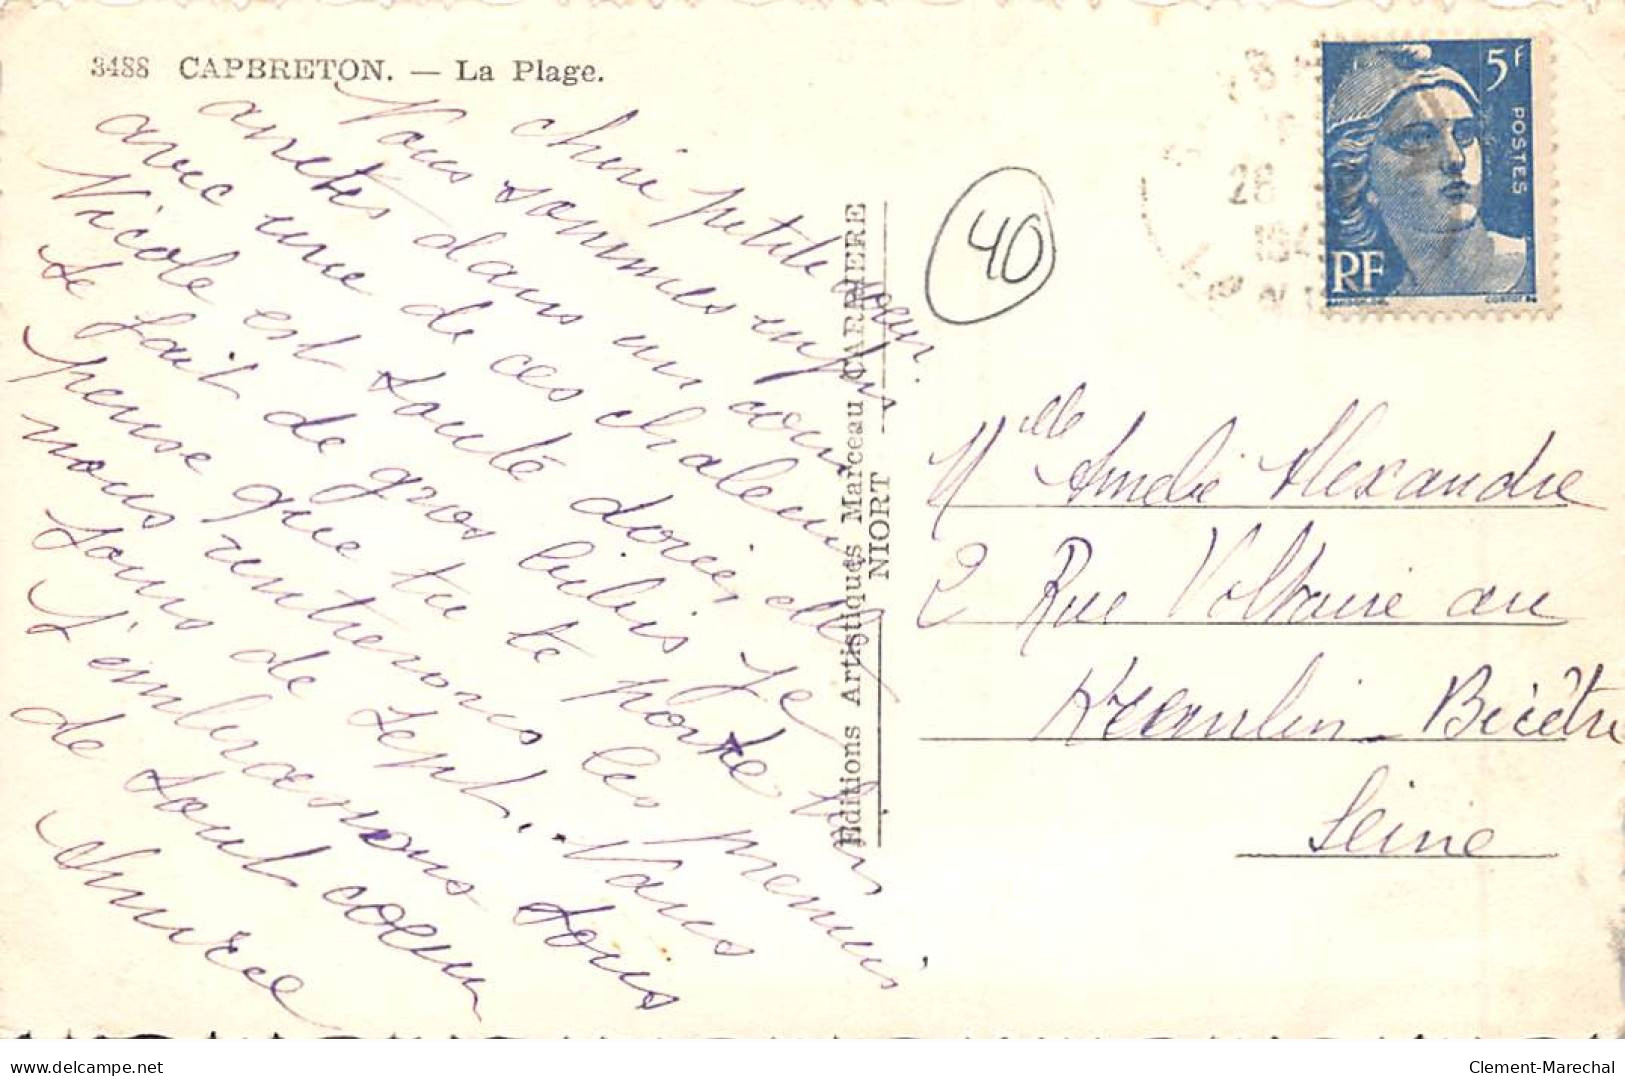 3488 CAPBRETON. — La Plage.
chère petite sœur.
Nous sommes enfin
arretés dans un coin
avec une de ces chaleur
Nicole est toute dorée, elle
se fait de gros bibis Je
pense que tu te porte bien
nous rentrerons les premiers
jours de Sept.. Nous
t'embrassons tous
de tout coeur
Editions Artistiques Marceau CARRIERE
NIORT
40
28
5F
POSTES
RF
Mlle Amelie Alexandre
2 Rue Voltaire au
Kremlin-Bicêtre
Seine
Clement-Marechal